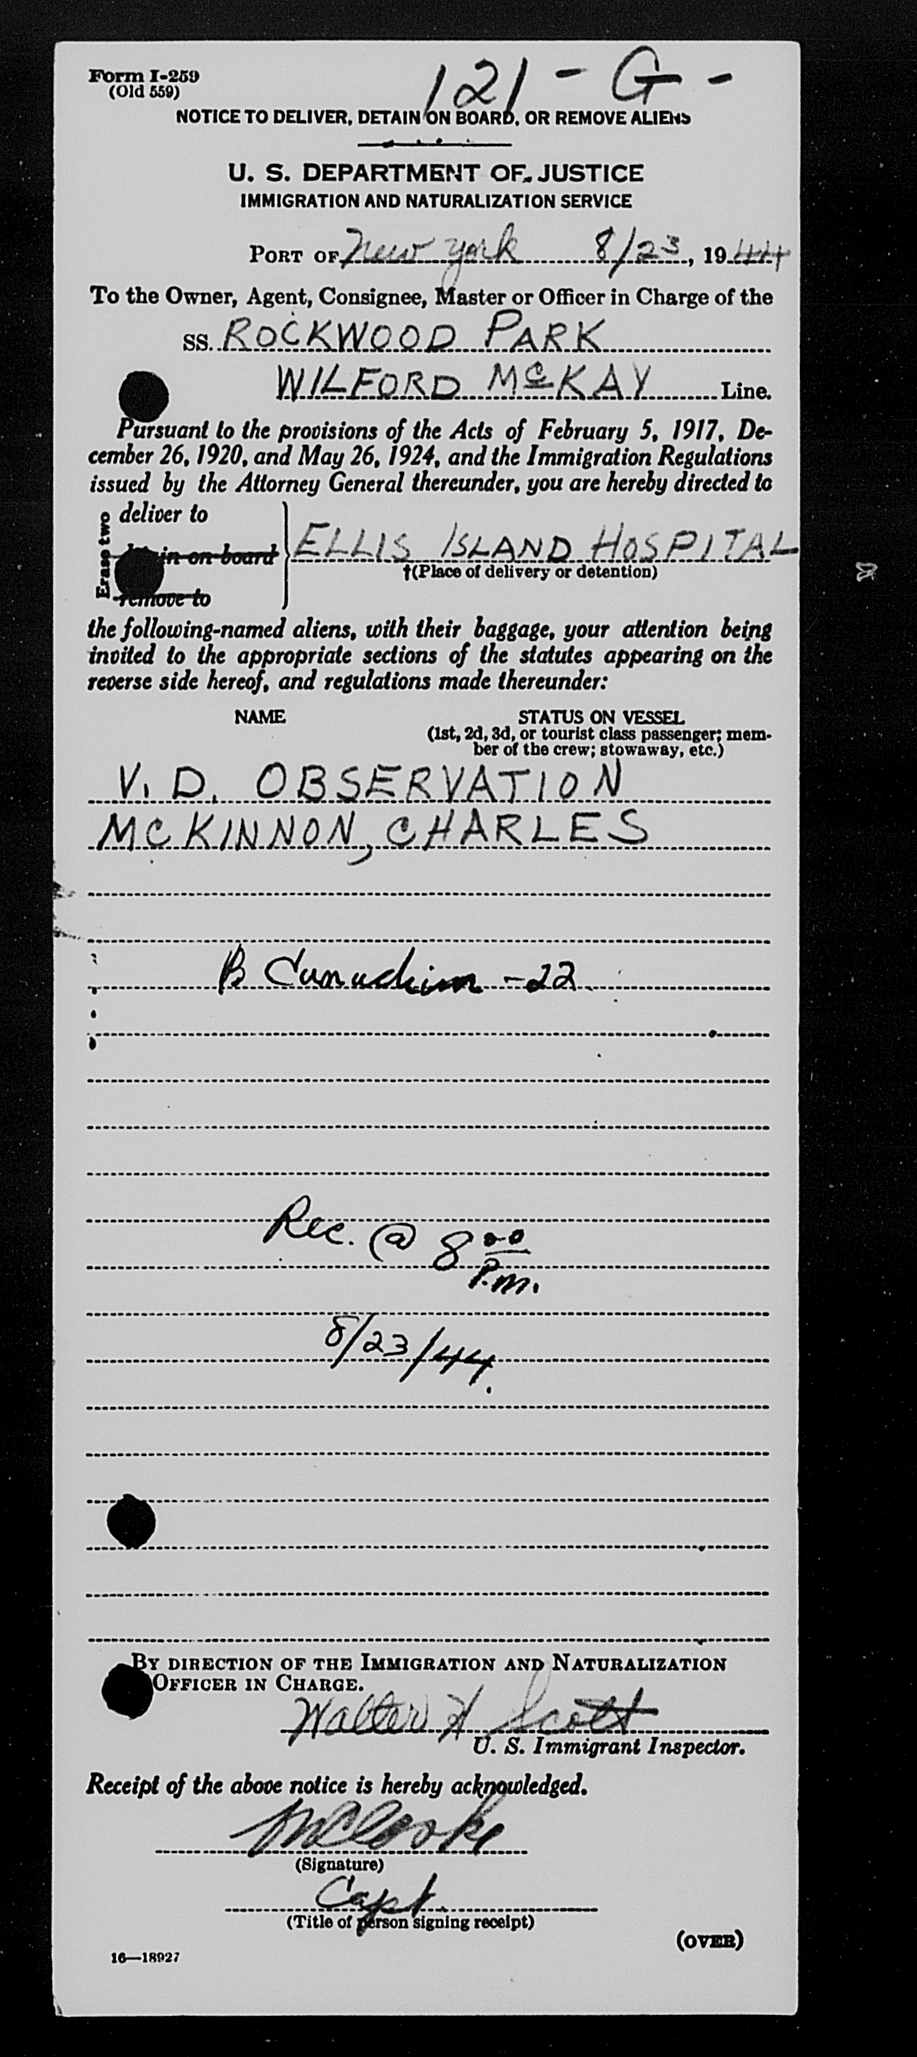 Form I-259
(Old 559)
121 - G -
NOTICE TO DELIVER, DETAIN ON BOARD, OR REMOVE ALIENS
U. S. DEPARTMENT OF JUSTICE
IMMIGRATION AND NATURALIZATION SERVICE
PORT OF New York 8/23, 1944
To the Owner, Agent, Consignee, Master or Officer in Charge of the
SS. ROCKWOOD PARK
WILFORD McKAY Line.
Pursuant to the provisions of the Acts of February 5, 1917, De-
cember 26, 1920, and May 26, 1924, and the Immigration Regulations
issued by the Attorney General thereunder, you are hereby directed to
Erase two
deliver to
in on board
remove to
ELLIS ISLAND HOSPITAL
†(Place of delivery or detention)
the following-named aliens, with their baggage, your attention being
invited to the appropriate sections of the statutes appearing on the
reverse side hereof, and regulations made thereunder:
NAME STATUS ON VESSEL
(1st, 2d, 3d, or tourist class passenger; mem-
ber of the crew; stowaway, etc.)
V. D. OBSERVATION
MCKINNON, CHARLES
B Canadian - 22
Rec. @ 8 00
P.m.
8/23/44.
BY DIRECTION OF THE IMMIGRATION AND NATURALIZATION
OFFICER IN CHARGE.
Walter H Scott
U. S. Immigrant Inspector.
Receipt of the above notice is hereby acknowledged.
(Signature)
Capt.
(Title of person signing receipt)
(OVER)
16—18927